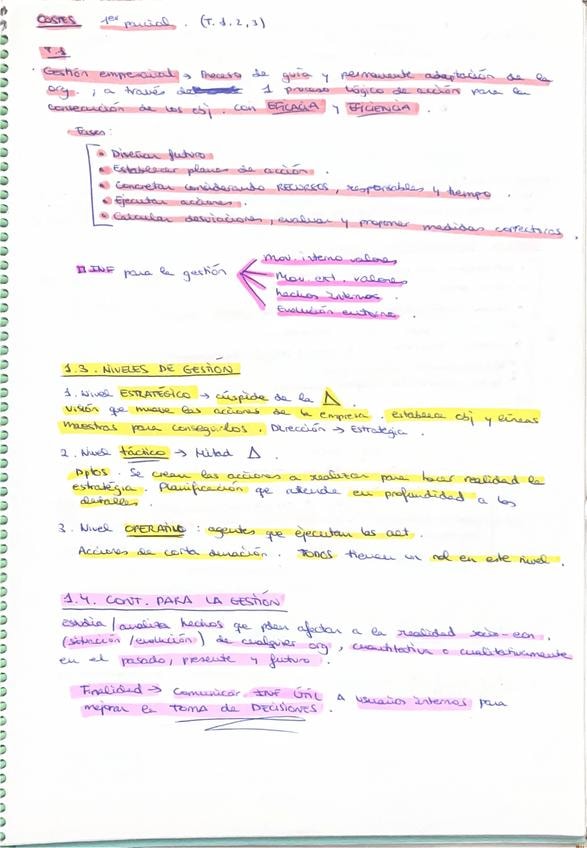 COSTES 1er parcial. (T.1,2,3)
T.1
Gestión empresarial → Proceso de guía y permanente adaptación de la
org., a través de 1 proceso lógico de acción para la
consecución de los obj. con EFICACIA y EFICIENCIA.
Fases:
• Diseñar futuro
• Establecer planes de acción.
• Concretar considerando RECURSOS, responsables y tiempo.
• Ejecutar acciones.
• Calcular desviaciones, evaluar y proponer medidas correctoras.
INF para la gestión
Mov. interno valores
Mov. ext. valores
hechos internos.
Evolución entorno.
1.3. NIVELES DE GESTIÓN
1. Nivel ESTRATÉGICO → cúspide de la Δ.
visión que mueve las acciones de la empresa. establece obj y líneas
maestras para conseguirlos. Dirección → Estrategia.
2. Nivel táctico → Mitad Δ.
Dptos. Se crean las acciones a realizar para hacer realidad la
estratégia. Planificación qe atiende en profundidad a los
detalles.
3. Nivel OPERATIVO : agentes que ejecutan las act.
Acciones de corta duración. TODOS tienen un rol en este nivel.
1.4. CONT. PARA LA GESTIÓN
estudia / analiza hechos que pden afectar a la realidad socio-econ.
(situación / evolución) de cualquier org, cuantitativa o cualitativamente
en el pasado, presente y futuro.
Finalidad → Comunicar INF ÚTIL A usuarios internos para
mejorar la TOMA de DECISIONES.